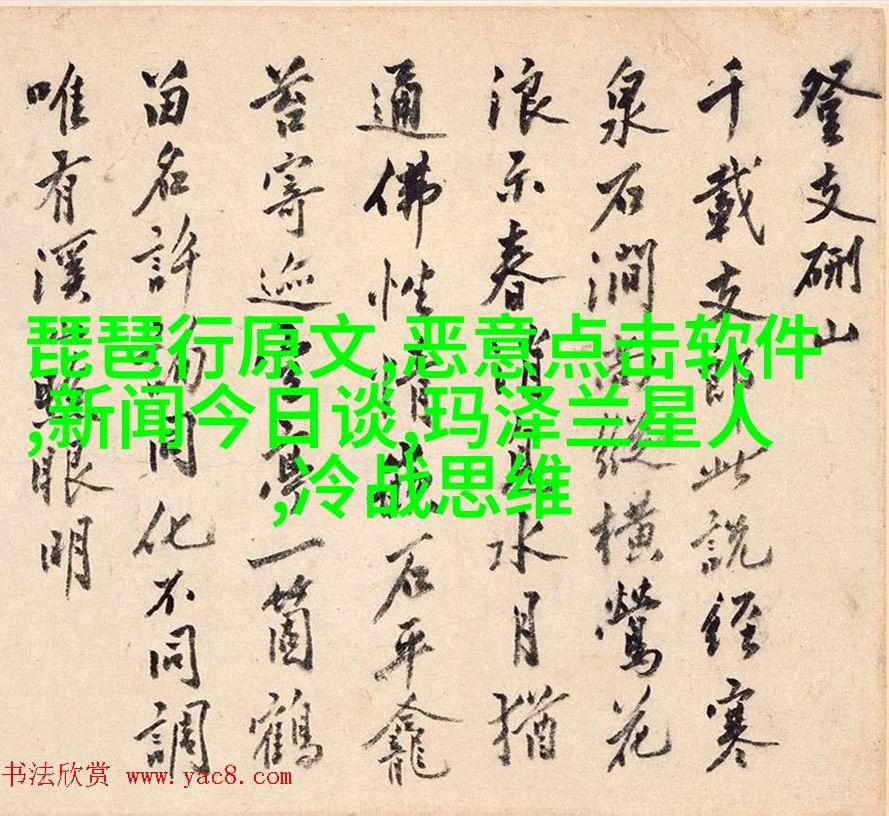 登支硎山
千載支郎此說經寒
泉石澗縱橫鶯花
浪示春水月猶
通佛性情石平龕
苔寄迹夢一箇鶴
留名許同化不同調
唯有溪照眼明
琵琶行原文,恶意点击软件
,新闻今日谈,玛泽兰星人
,冷战思维
书法欣赏 www.yac8.com